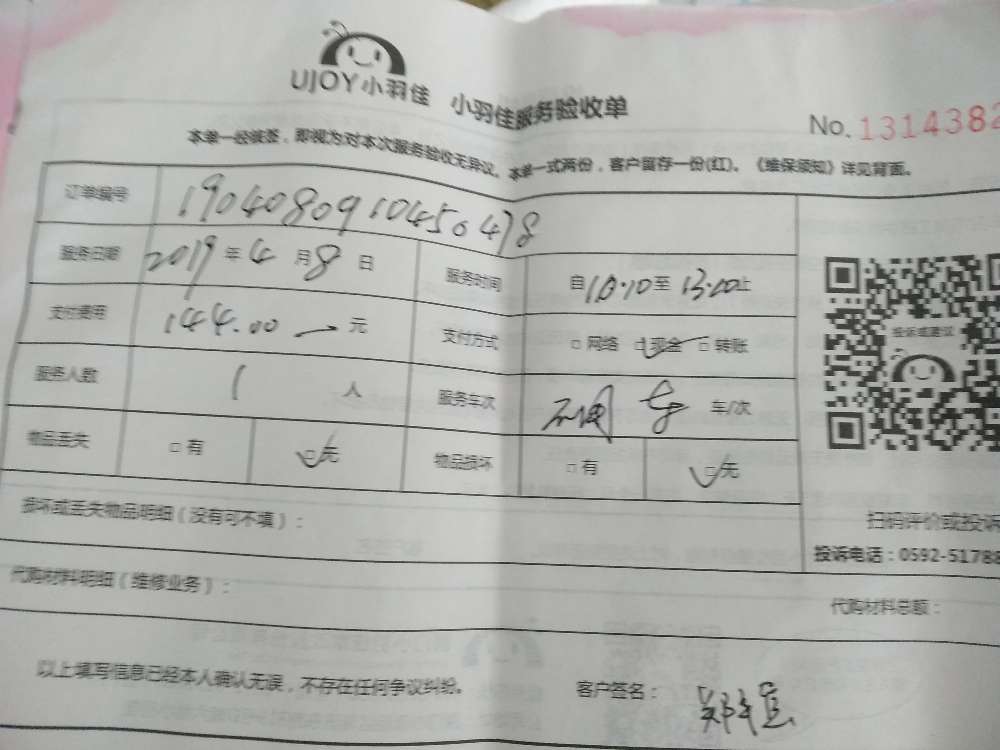 UJOY小羽佳 小羽佳服务验收单
No. 1314382
本单一经被签，即视为对本次服务验收无异议。本单一式两份，客户留存一份(红)。《维保须知》详见背面。
订单编号 190408091045​0478
服务日期 2019 年 4 月 8 日 服务时间 自 10.10 至 13.00 止
支付费用 144.00 元 支付方式 □网络 □现金 □转账
投诉或建议
服务人数 1 人 服务车次 车/次
物品丢失 □有 □无 物品损坏 □有 □无
损坏或丢失物品明细（没有可不填）：
扫码评价或投诉
投诉电话：0592-51788
代购材料明细（维修业务）：
代购材料总额：
以上填写信息已经本人确认无误，不存在任何争议纠纷。 客户签名：